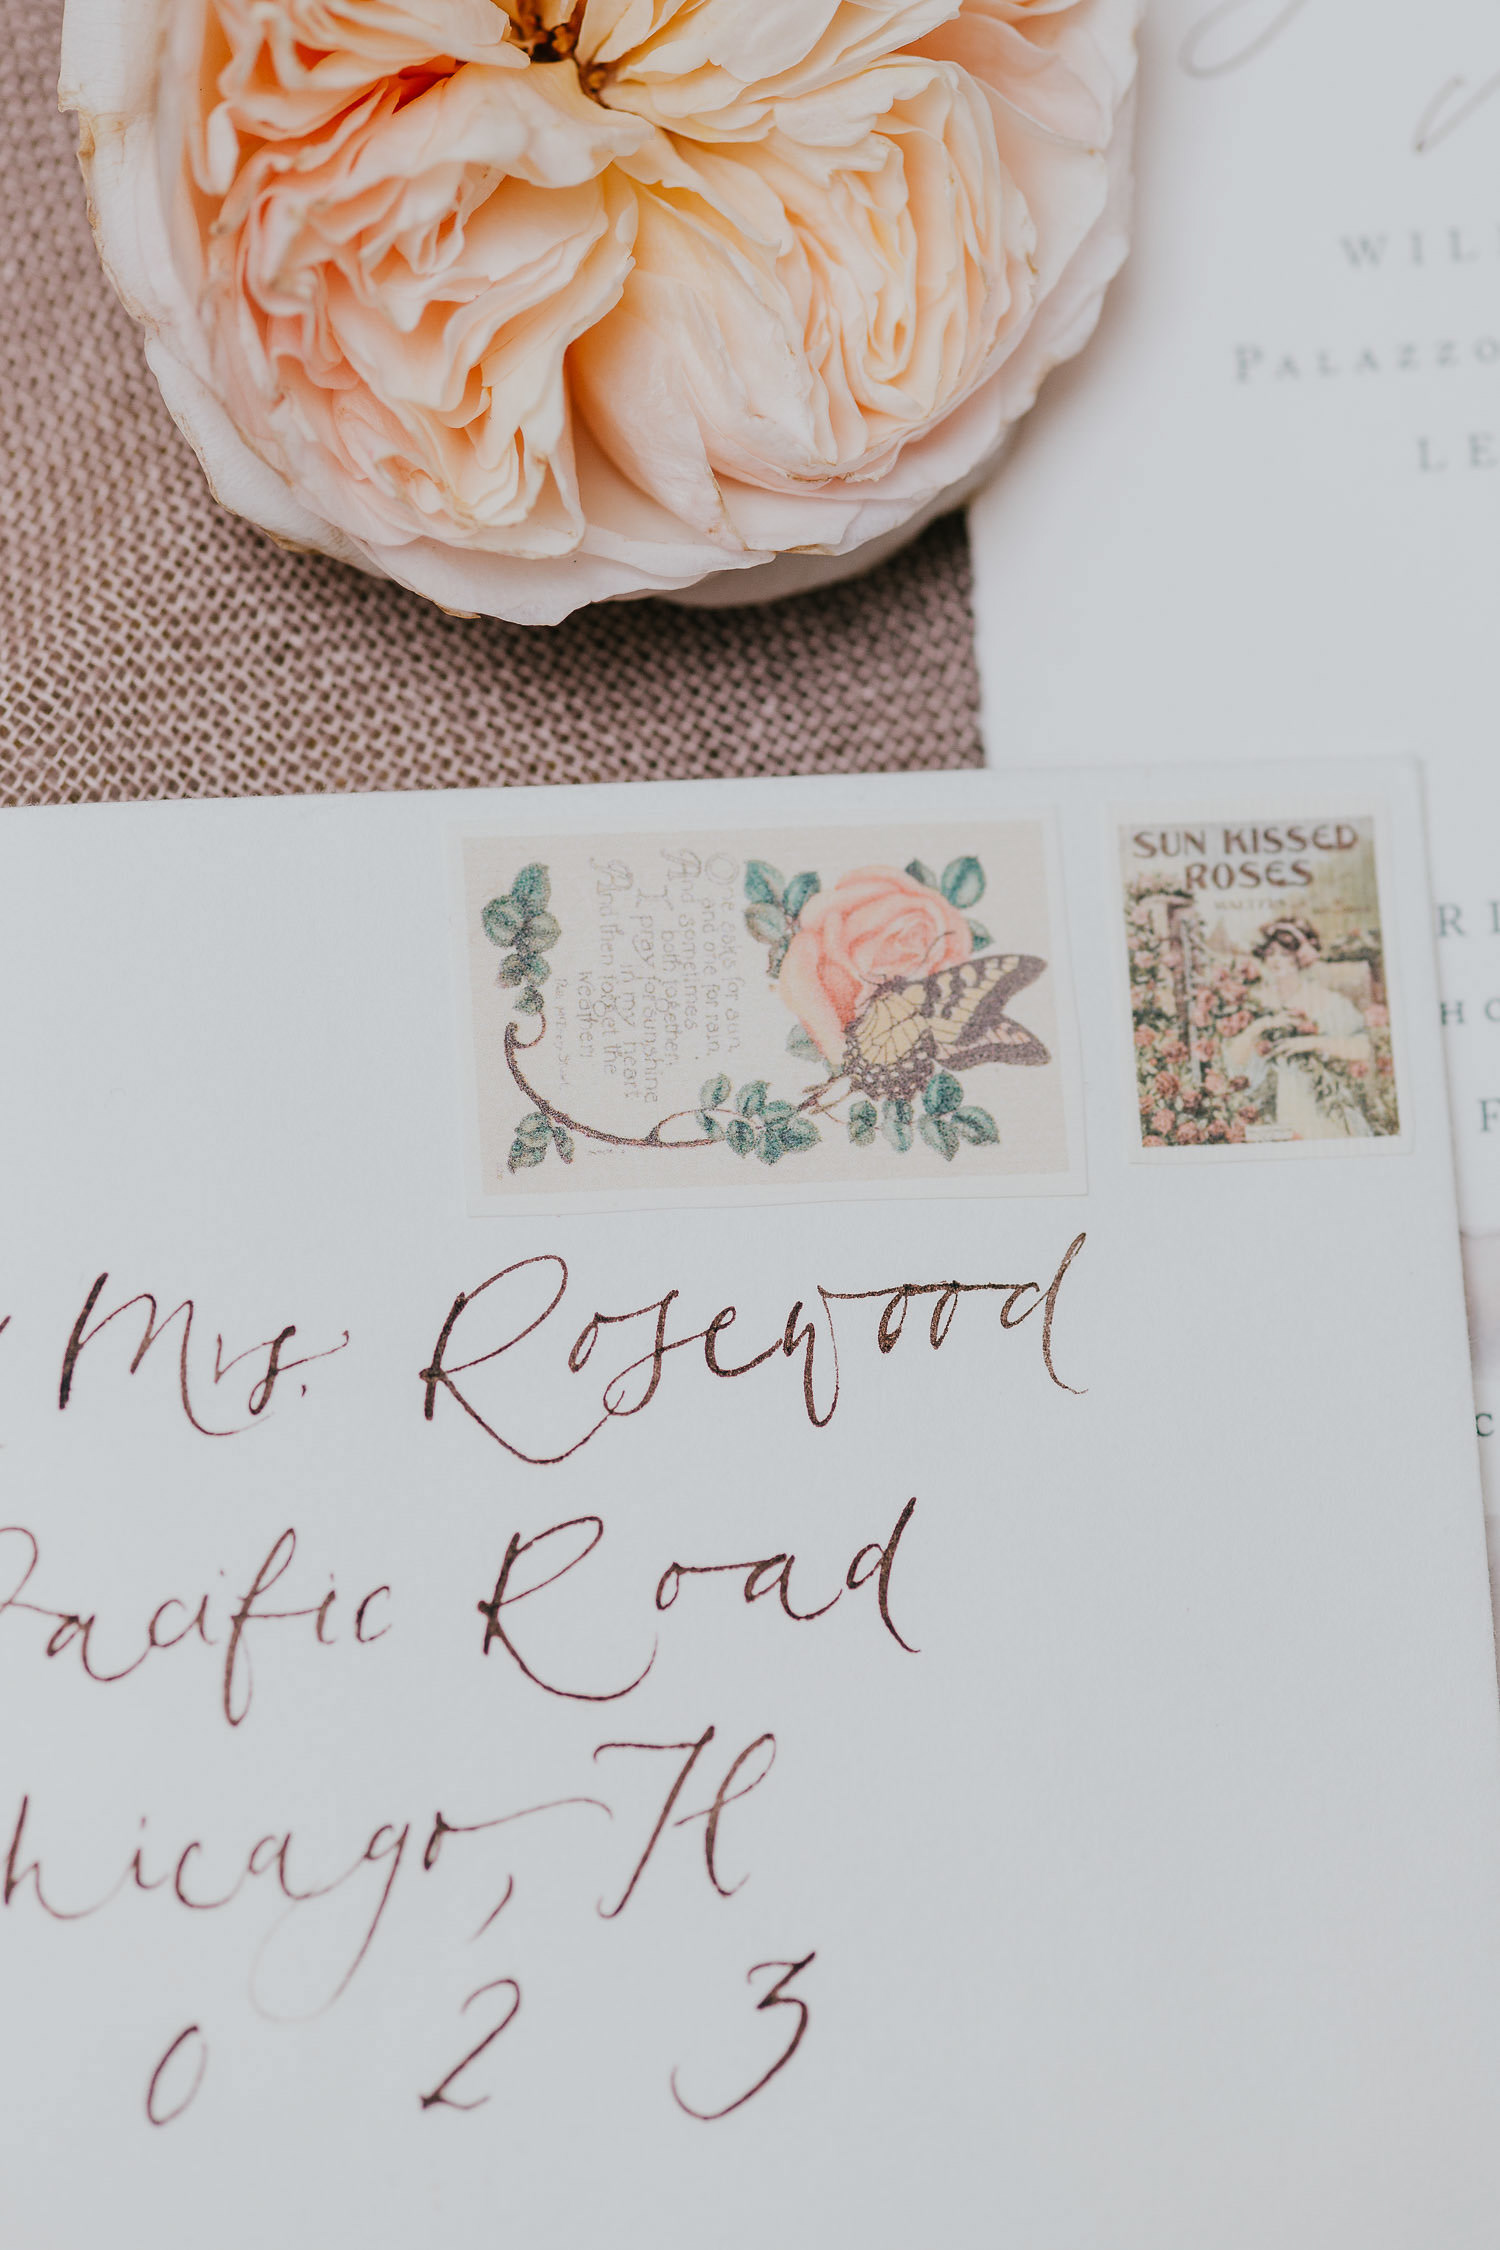 WIL
PALAZZO
LE
SUN KISSED
ROSES
WALTZES
One asks for sun,
and one for rain,
And sometimes
both together;
I pray for sunshine
in my heart
And then forget the
weather.
Mrs. Rosewood
Pacific Road
hicago, Il
0 2 3